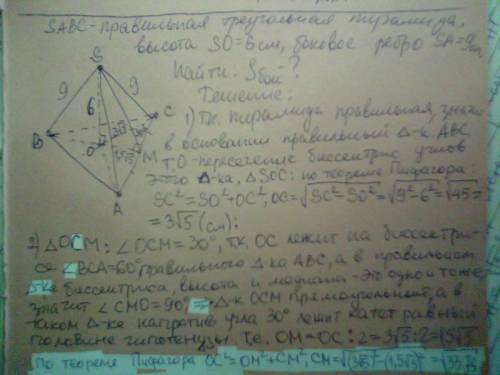 SABC-правильная треугольная пирамида,
высота SO=6см, боковое ребро SA=9см
Найти: Sбок?
Решение:
1) Т.к. пирамида правильная, значит
в основании правильный Δ-к ABC,
т.О-пересечение биссектрис углов
этого Δ-ка, ΔSOC: по теореме Пифагора:
SC²=SO²+OC², OC=√SC²-SO²=√9²-6²=√45=
=3√5 (см);
2) ΔOCM: ∠OCM=30°, т.к. OC лежит на биссектри-
се ∠BCA=60° правильного Δ-ка ABC, а в правильном
Δ-ке биссектриса, высота и медиана-это одно и тоже,
значит ∠CMO=90° ⇒ Δ-к OCM прямоугольный, а в
таком Δ-ке напротив угла 30° лежит катет равный
половине гипотенузы, т.е. OM=OC:2=3√5:2=1,5√5
По теореме Пифагора OC²=OM²+CM², CM=√(3√5)²-(1,5√5)²=√33,75
S
9
9
6
B
O
C
M
A